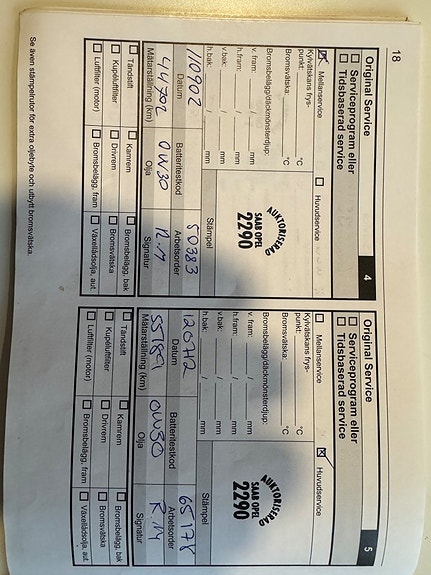 18
Original Service
4
Serviceprogram eller
Tidsbaserad service
Mellanservice
Huvudservice
Kylvätskans frys-
punkt:
°C
Bromsvätska:
°C
Bromsbelägg/däckmönsterdjup:
v. fram: / mm
h.fram: / mm
v.bak: / mm
h.bak: / mm
AUKTORISERAD
SAAB OPEL
2290
Stämpel
110902
50383
Datum
Batteritestkod
Arbetsorder
44702
0W30
R.M
Mätarställning (km)
Olja
Signatur
Tändstift
Kamrem
Bromsbelägg, bak
Kupéluftfilter
Drivrem
Bromsvätska
Luftfilter (motor)
Bromsbelägg, fram
Växellådsolja, aut.
Original Service
5
Serviceprogram eller
Tidsbaserad service
Mellanservice
Huvudservice
Kylvätskans frys-
punkt:
°C
Bromsvätska:
°C
Bromsbelägg/däckmönsterdjup:
v. fram: / mm
h.fram: / mm
v.bak: / mm
h.bak: / mm
AUKTORISERAD
SAAB OPEL
2290
Stämpel
65178
Datum
Batteritestkod
Arbetsorder
R.M
Mätarställning (km)
Olja
Signatur
Tändstift
Kamrem
Bromsbelägg, bak
Kupéluftfilter
Drivrem
Bromsvätska
Luftfilter (motor)
Bromsbelägg, fram
Växellådsolja, aut.
Se även stämpelrutor för extra oljebyte och utbytt bromsvätska.